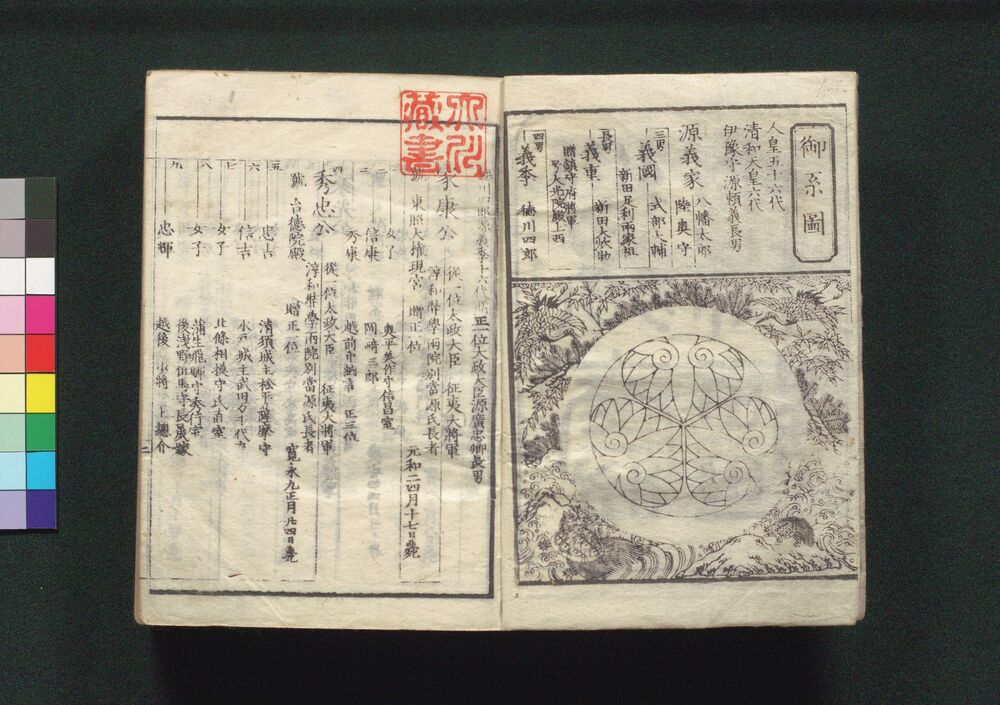 御系圖
人皇五十六代
清和天皇六代
伊豫守源頼義長男
源義家 八幡太郎 陸奥守
三男
義國 式部大輔
新田足利兩家祖
長男
義重 新田大炊助
贈鎮守府將軍
号大光院殿上西
四男
義季 徳川四郎
德川四郎源義季十六代
正二位大政大臣源廣忠卿長男
家康公
從一位太政大臣 征夷大將軍
淳和弉學兩院別當源氏長者
號 東照大権現宮 贈正一位
元和二四月十七日薨
二 女子 奥平美作守信昌室
三 信康 岡崎三郎
秀康 越前中納言 正三位
四
秀忠公
從一位太政大臣 征夷大將軍
淳和弉學兩院別當源氏長者
號 台德院殿 贈正一位
寛永九正月廿四日薨
五 忠吉 清須城主松平薩摩守
六 信吉 水戸城主武田万千代丸
七 女子 北條相摸守氏直室
八 女子 蒲生飛驒守秀行室
後浅野但馬守長晟嫁
九 忠輝 越後少將 上總介
二